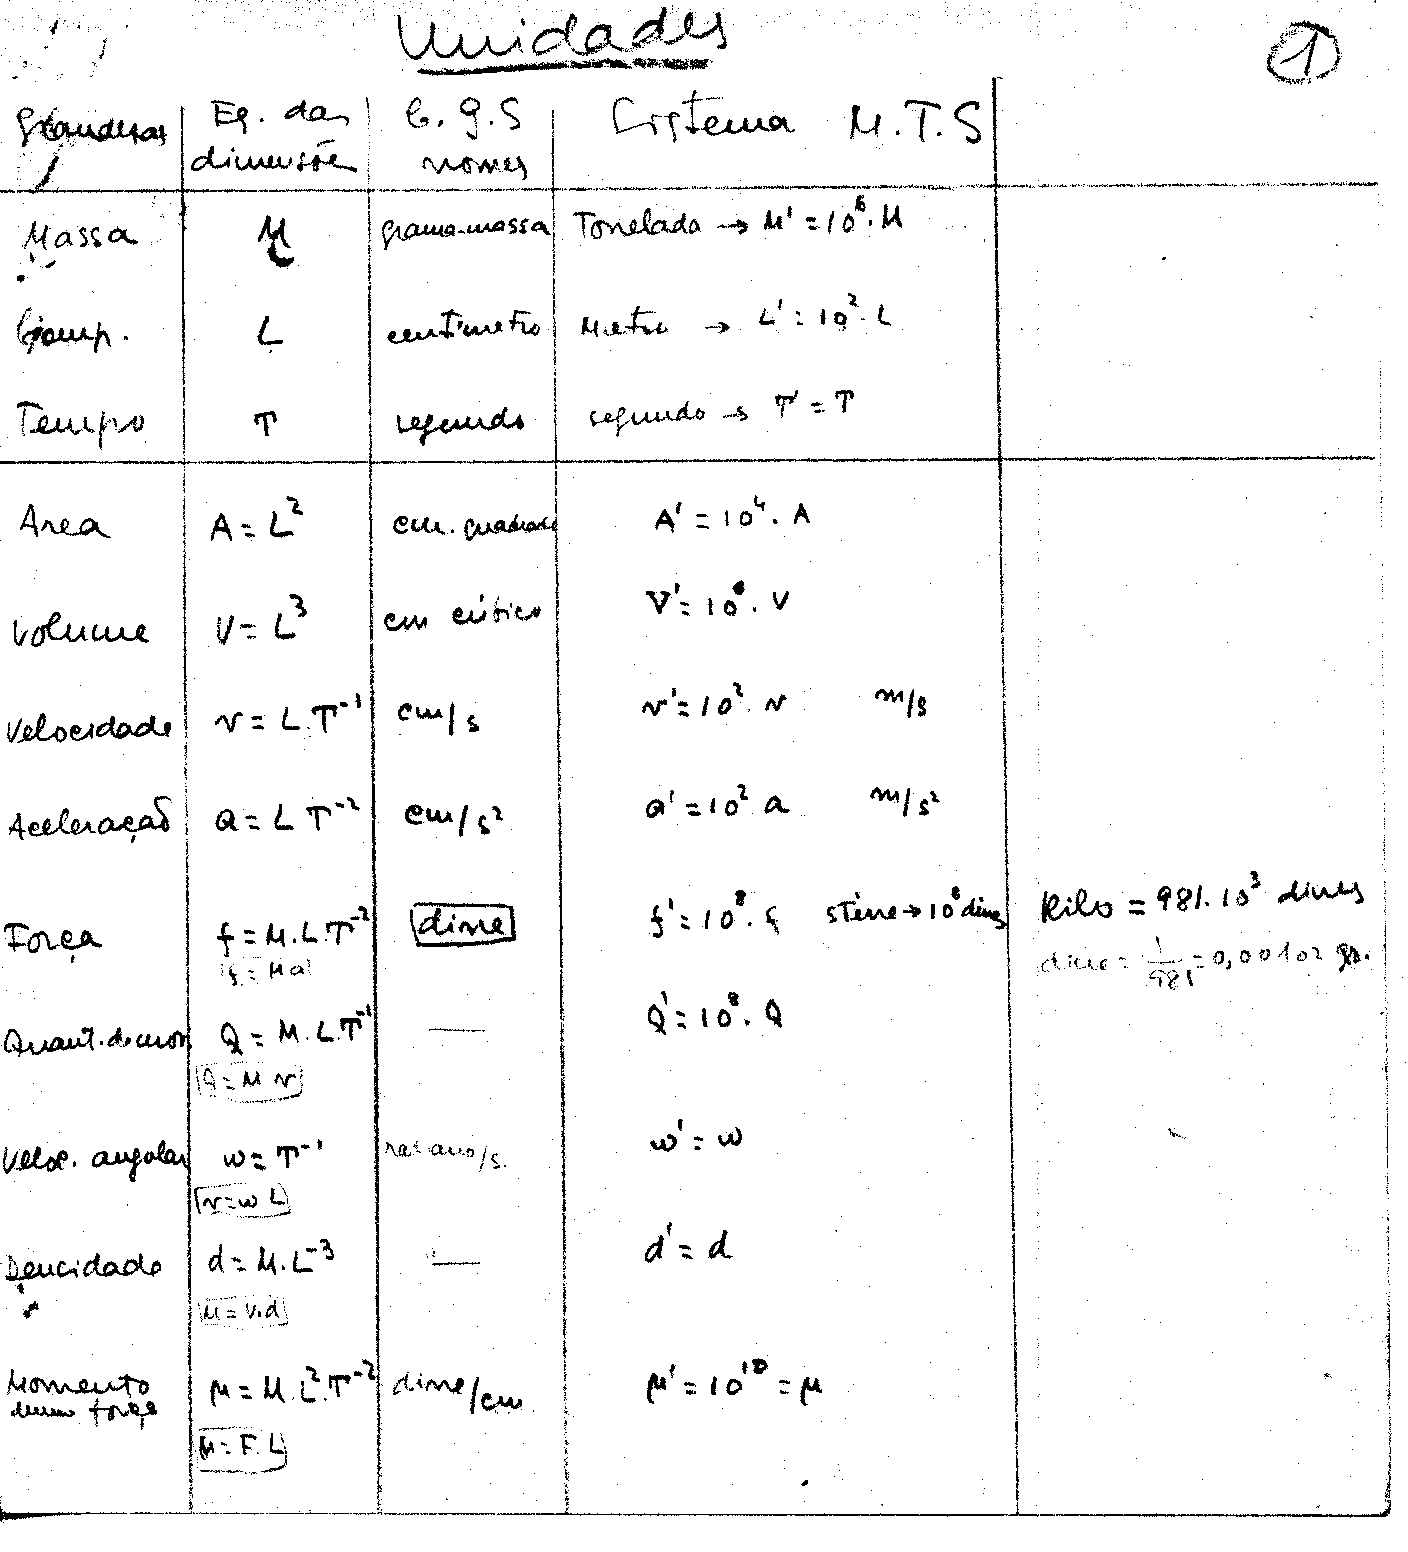 Unidades
1
Grandesas Eq. das dimensões C.G.S nomes Sistema M.T.S
Massa M grama-massa Tonelada → M' = 10⁶. M
Comp. L centímetro Metro → L' = 10². L
Tempo T segundo segundo → T' = T
Area A = L² cm. quadrado A' = 10⁴. A
Volume V = L³ cm cúbico V' = 10⁶. V
Velocidade v = L.T⁻¹ cm/s v' = 10². v m/s
Aceleração a = L T⁻² cm/s² a' = 10² a m/s²
Força f = M.L.T⁻² dine f' = 10⁸. f stène → 10⁸ dines Kilo = 981.10³ dines
f = M a dine = 1/981 = 0,00102 gr.
Quant. de mov. Q = M.L.T⁻¹ — Q' = 10⁸. Q
Q = M v
Veloc. angolar w = T⁻¹ radiano/s. w' = w
v = w L
Dencidade d = M.L⁻³ — d' = d
M = V.d
Momento duma força μ = M.L².T⁻² dine/cm μ' = 10¹⁰ = μ
μ = F.L